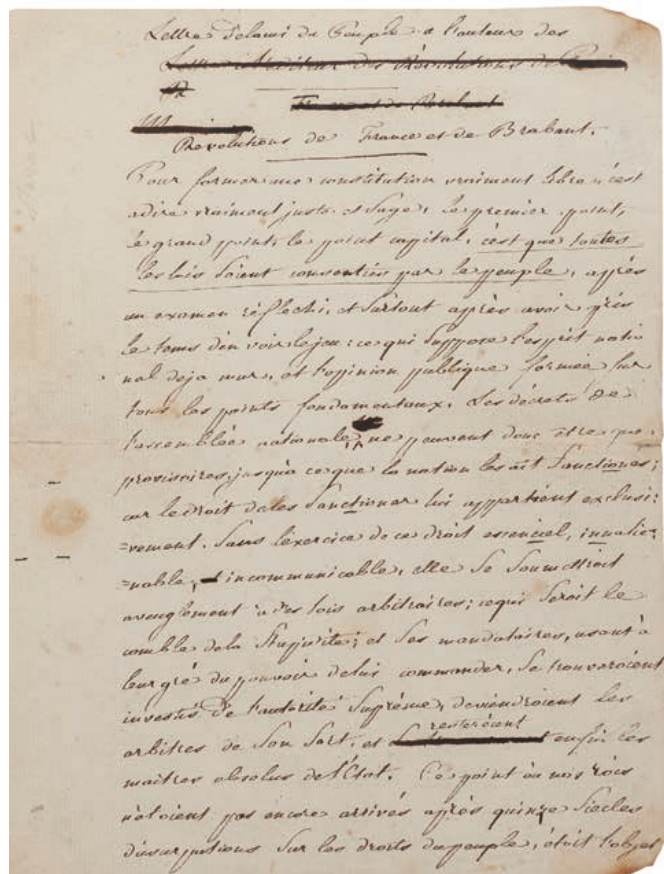 Lettre de l'ami du Peuple a l'auteur des
Revolutions de France et de Brabant.
Pour former une constitution vraiment libre, c'est
adire vraiment juste et sage, le premier point,
le grand point, le point capital, c'est que toutes
les lois soient consenties par le peuple, après
un examen réflechi, et surtout après avoir pris
le tems d'en voir le jeu: ce qui suppose l'esprit natio
nal deja mur, et l'opinion publique formée sur
tous les points fondamentaux. Les décrets de
l'assemblée nationale ne peuvent donc être que
provisoires, jusqu'à ce que la nation les ait sanctionés;
car le droit de les sanctioner lui appartient exclusi=
=vement. Sans l'exercice de ce droit essenciel, inalié=
=nable, incommunicable, elle se soumettroit
aveuglement à des lois arbitraires; ce qui seroit le
comble de la stupidité; et ses mandataires, usant à
leur gré du pouvoir de lui commander, se trouveroient
investis de l'autorité suprême, deviendroient les
arbitres de son sort, et resteroient enfin les
maitres absolus de l'Etat. Ce point où nos rois
n'étoient pas encore arrivés après quinze siecles
d'usurpations sur les droits du peuple, étoit l'objet